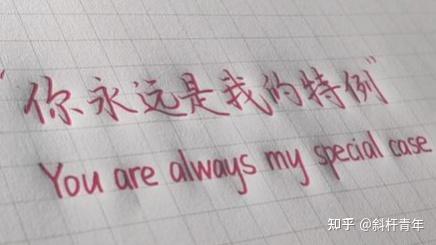 "你永远是我的特例"
You are always my special case
知乎 @斜杆青年